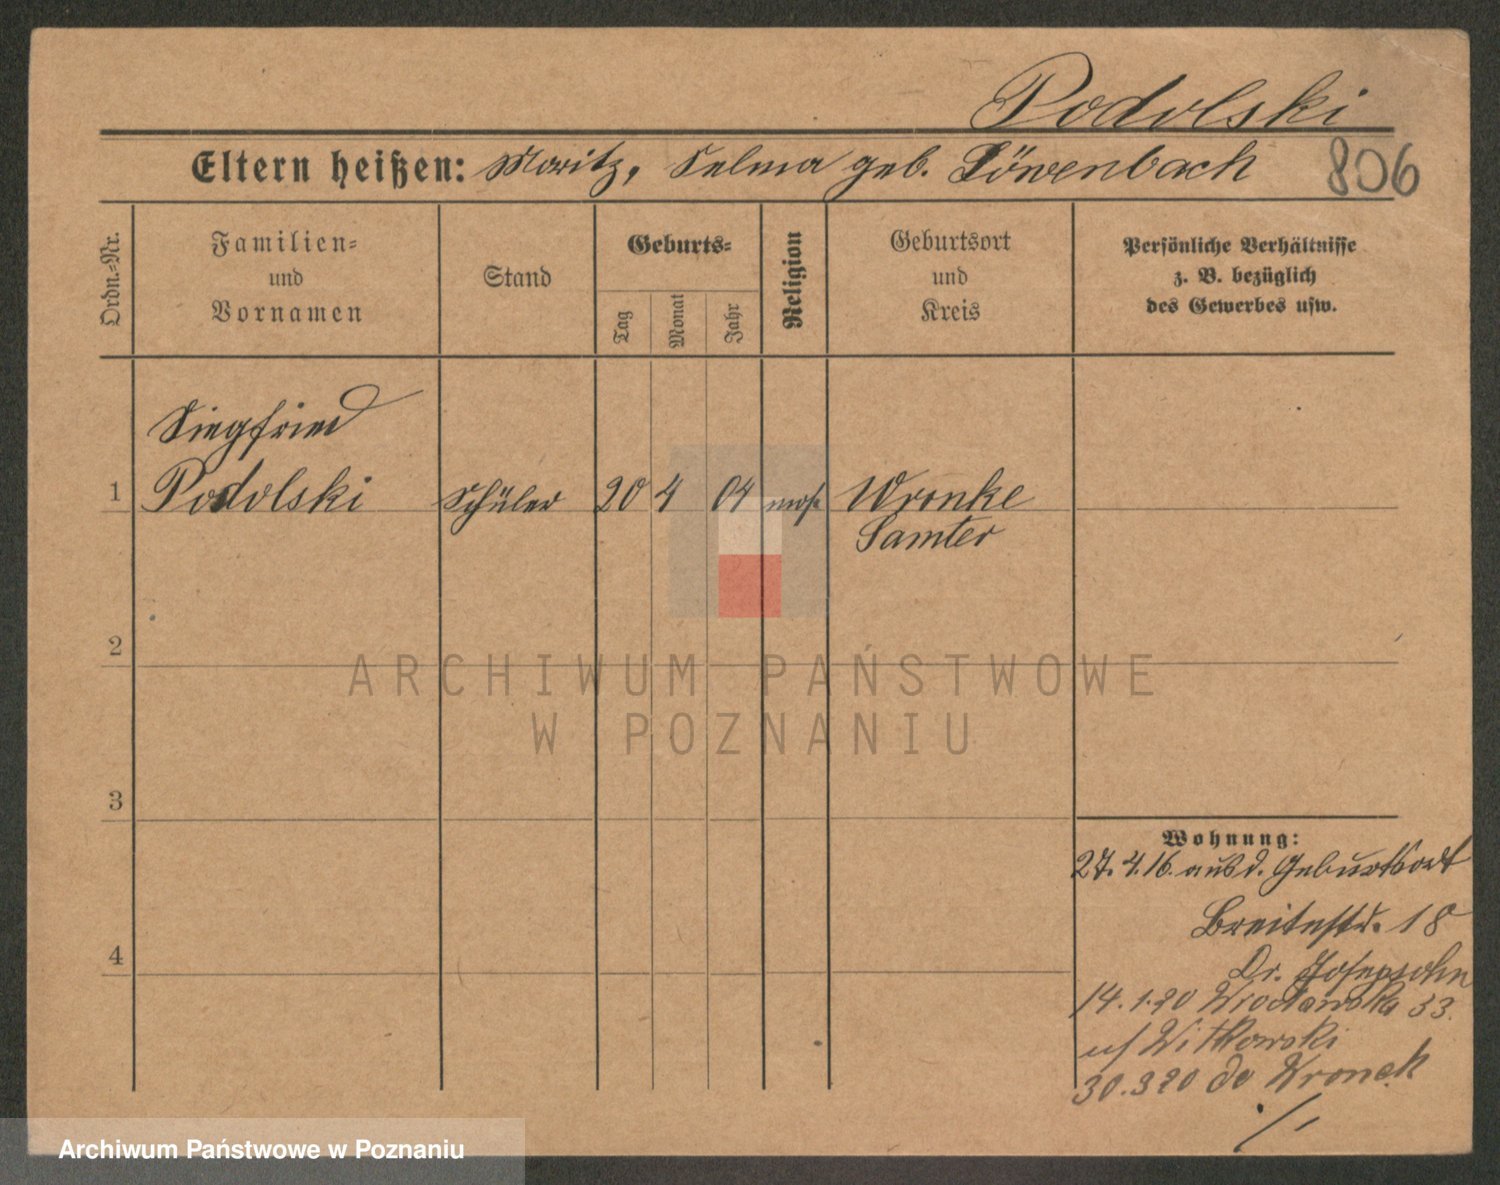 Podolski
Eltern heißen: Moritz, Selma geb. Löwenbach
806
Ordn.=Nr.
Familien=
und
Vornamen
Stand
Geburts=
Tag
Monat
Jahr
Religion
Geburtsort
und
Kreis
Persönliche Verhältnisse
z. B. bezüglich
des Gewerbes usw.
Siegfried
1 Podolski Schüler 20 4 04 mos. Wronke
Samter
2
ARCHIWUM PAŃSTWOWE
W POZNANIU
3
Wohnung:
27.4.16. aus d. Geburtsort
Breitestr. 18
Dr. Josepsohn
4
14.1.20 Wrocławska 33.
u/ Witkowski
30.3 20 do Wronek
./.
Archiwum Państwowe w Poznaniu